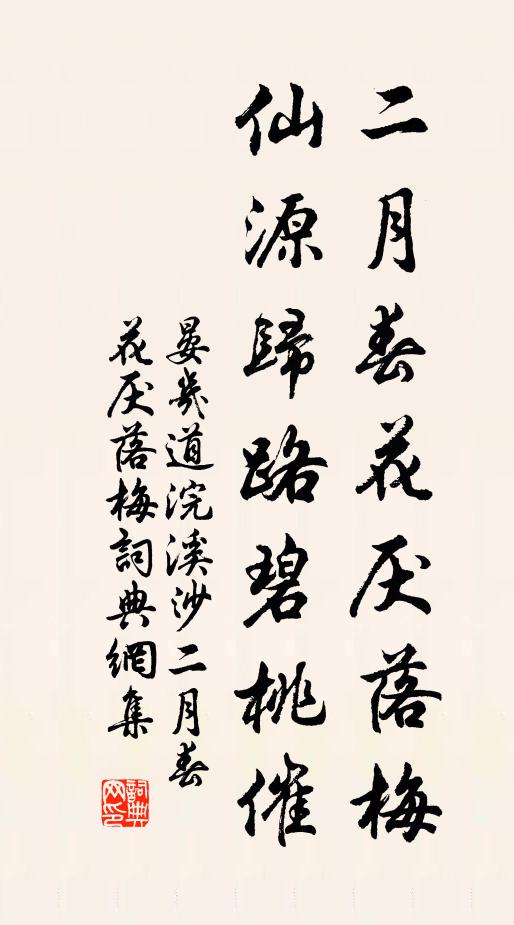 二月春花厌落梅
仙源歸路碧桃催
晏幾道浣溪沙二月春
花厌落梅詞典網集
詞典网印